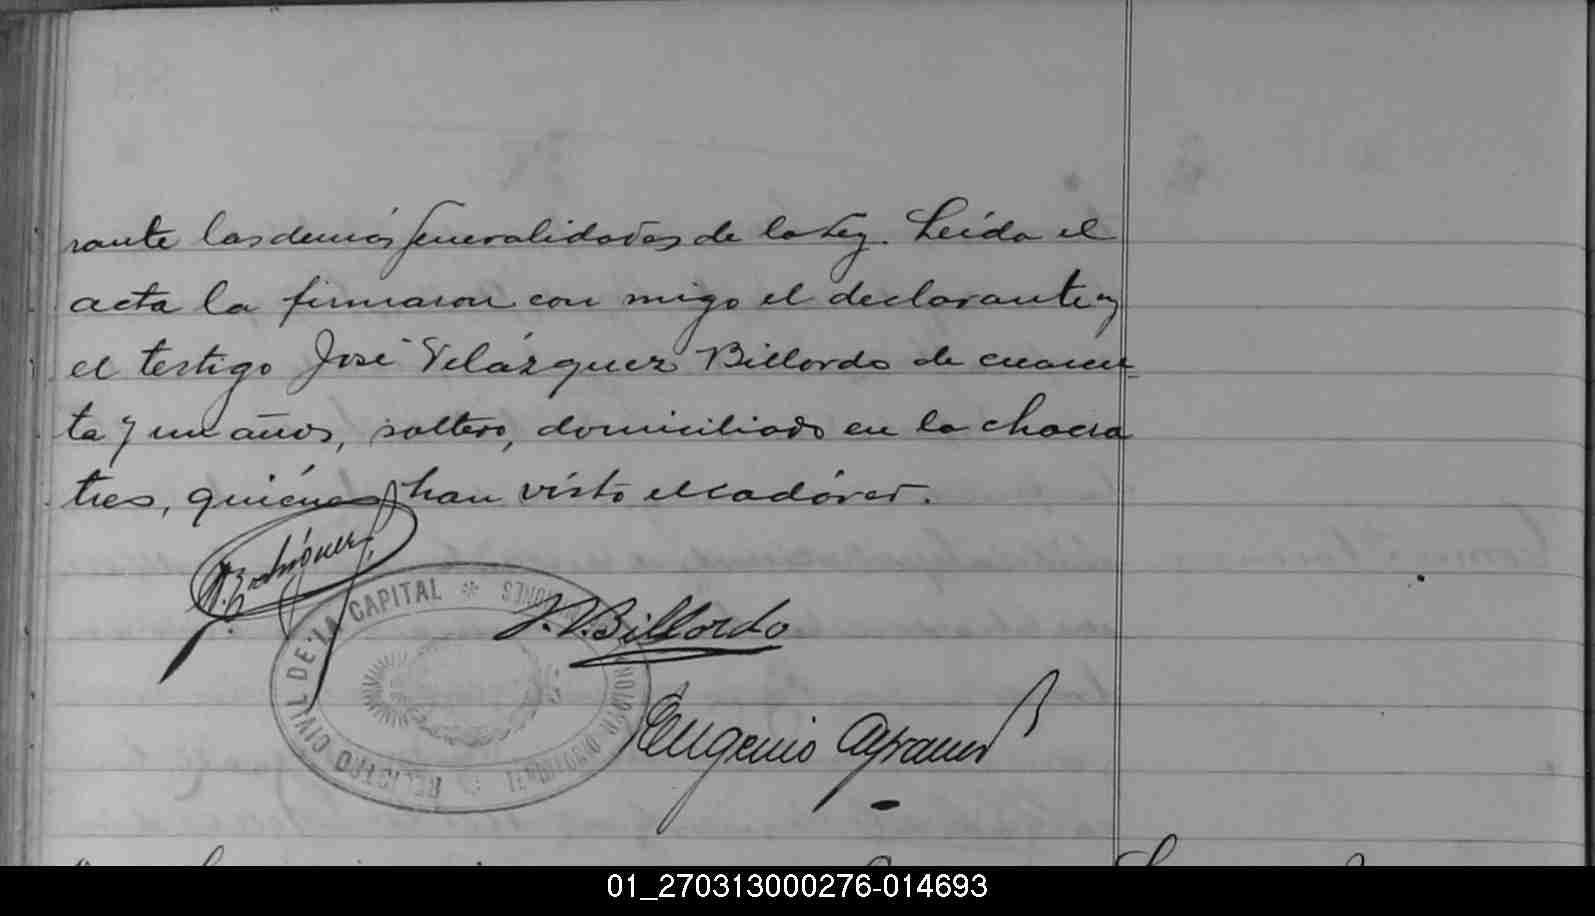 rante las demás generalidades de la Ley. Leída el
acta la firmaron con migo el declarante y
el testigo José Velázquez Billordo de cuaren-
ta y un años, soltero, domiciliado en la chacra
tres, quiénes han vísto el cadáver.
Rodríguez
J. V. Billordo
REGISTRO CIVIL DE LA CAPITAL * MISIONES
Eugenio
01_270313000276-014693